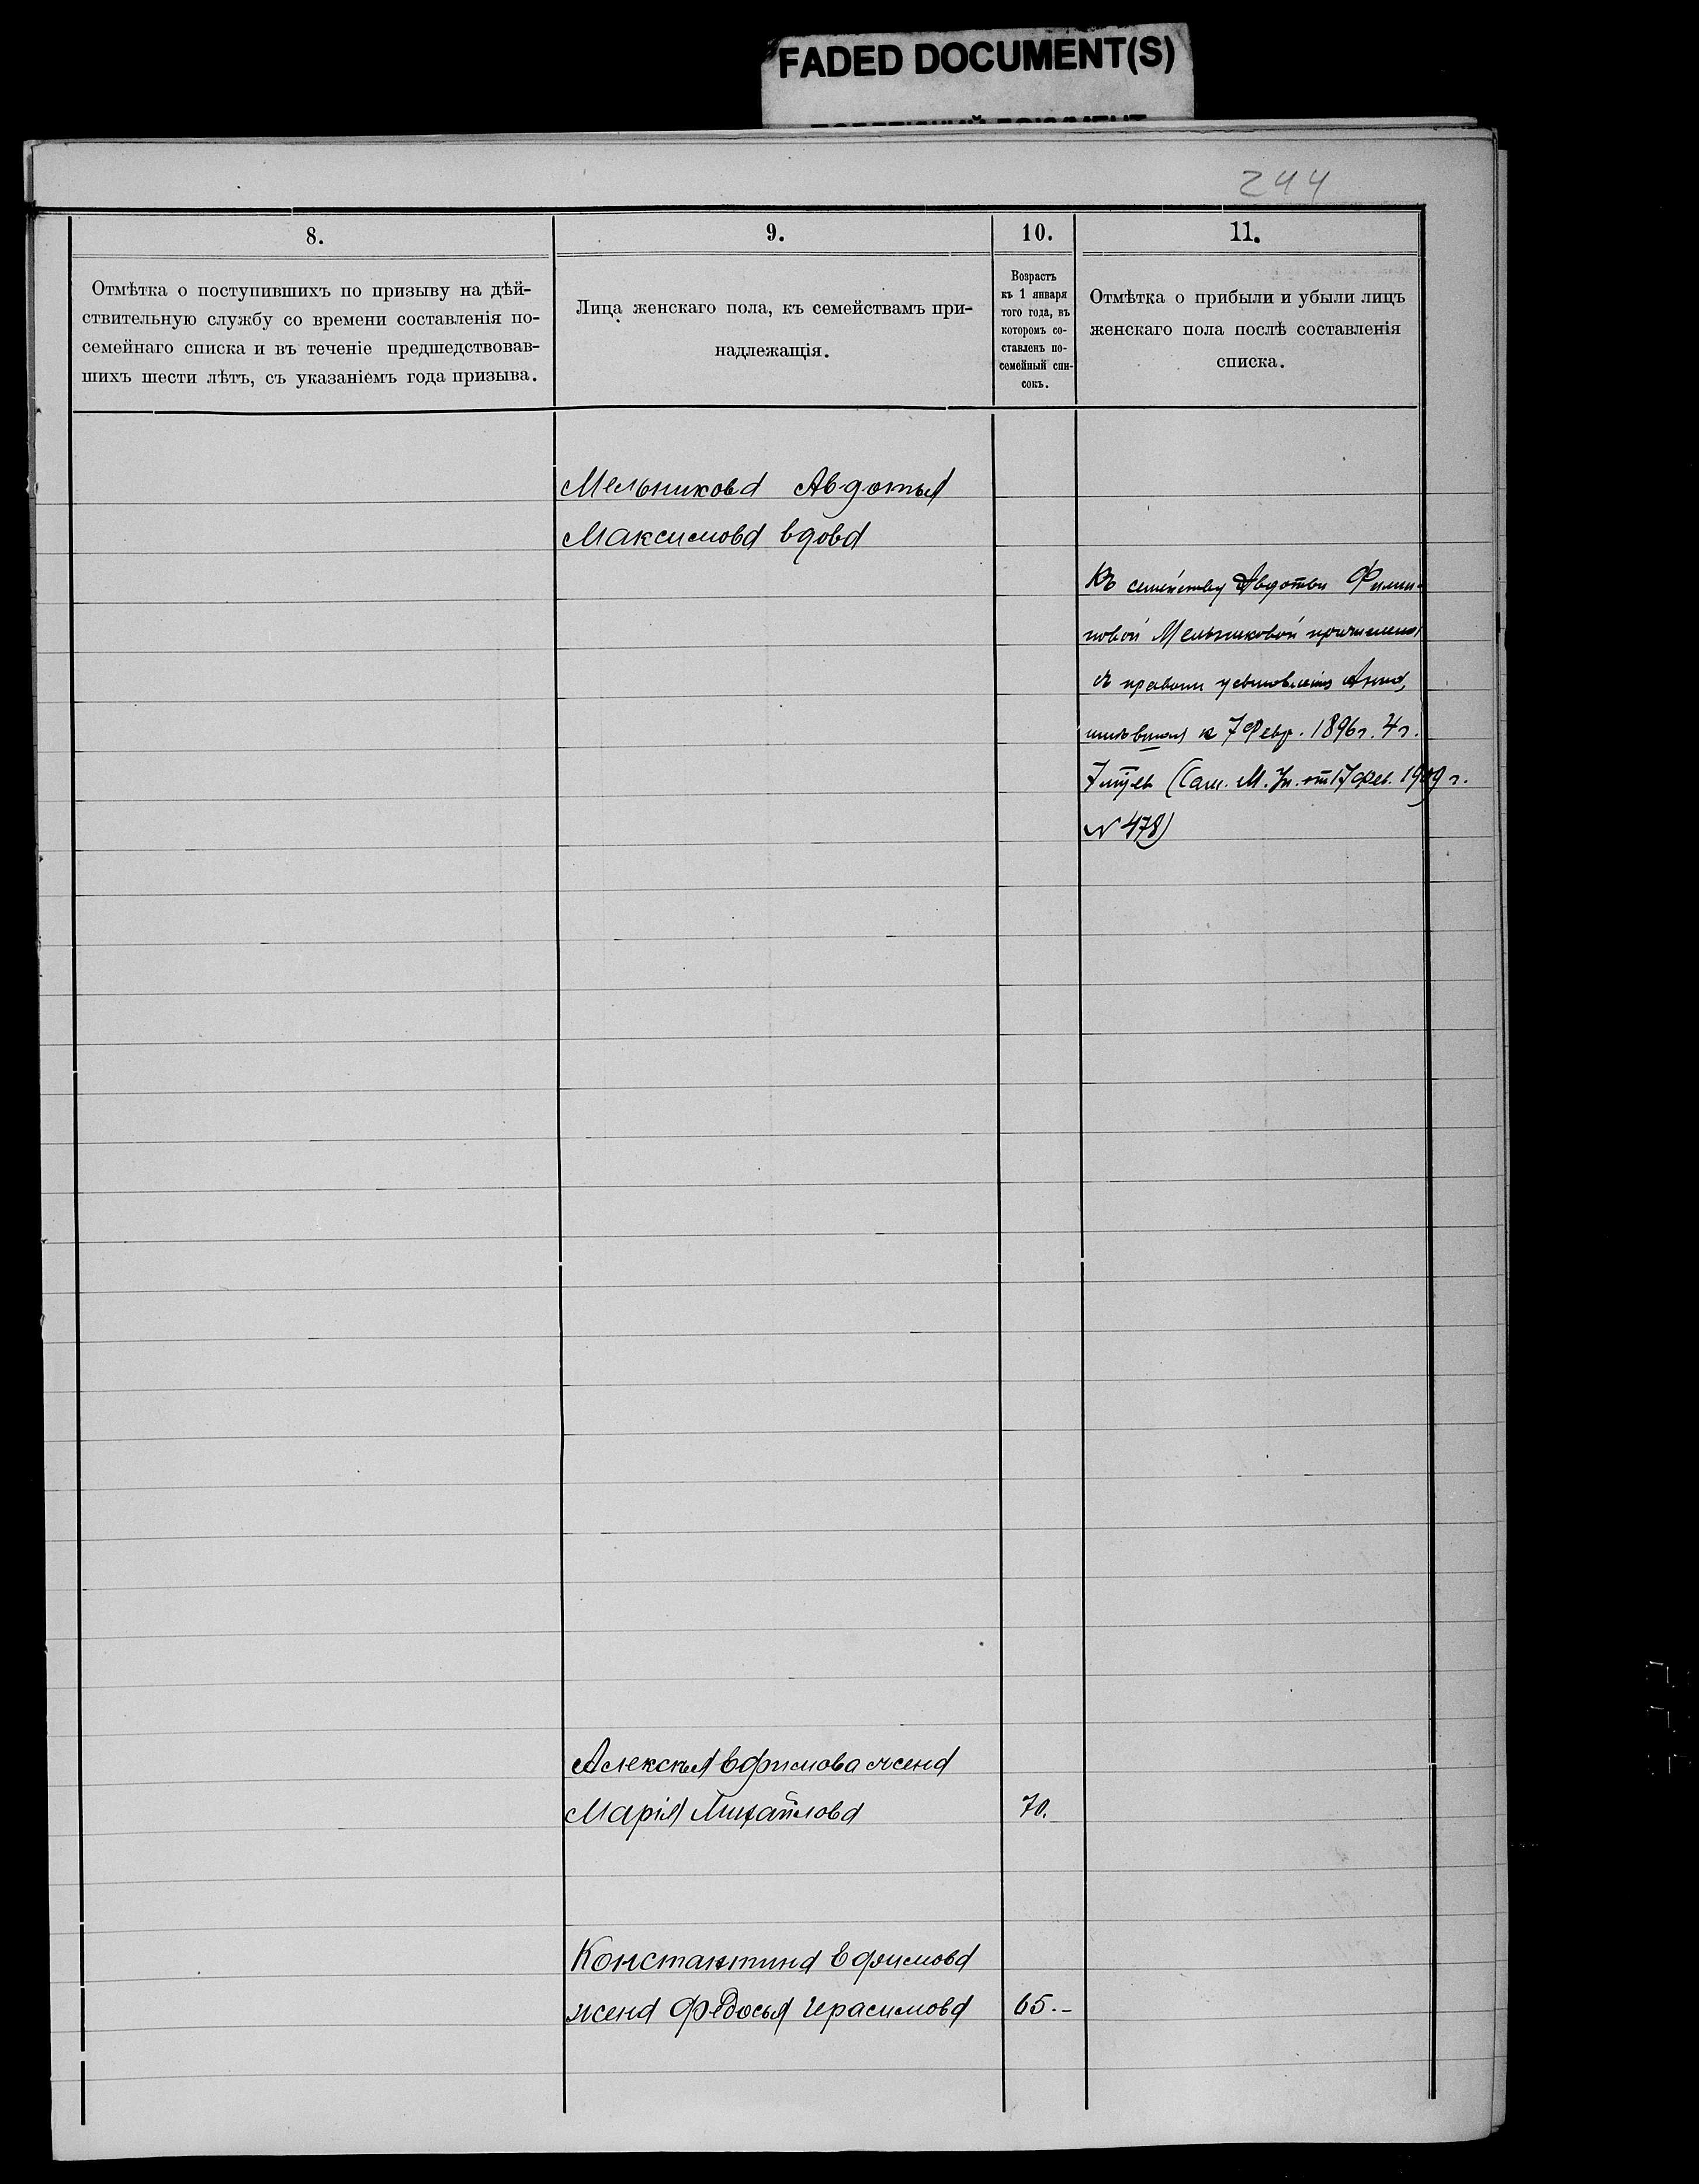 FADED DOCUMENT(S)
244
8.
9.
10.
11.
Отмѣтка о поступившихъ по призыву на дѣй-
ствительную службу со времени составленія по-
семейнаго списка и въ теченіе предшедствовав-
шихъ шести лѣтъ, съ указаніемъ года призыва.
Лица женскаго пола, къ семействамъ при-
надлежащія.
Возрастъ
къ 1 января
того года, въ
которомъ со-
ставленъ по-
семейный спи-
сокъ.
Отмѣтка о прибыли и убыли лицъ
женскаго пола послѣ составленія
списка.
Мельникова Авдотья
Максимова вдова
Къ семейству Авдотьи Филип-
повой Мельниковой причислена
съ правами усыновленія Анна,
имѣвшая къ 7 Февр. 1896 г. 4 г.
7 (Сам. М. Уп. от 17 фев. 1909 г.
N 478)
Алексѣя Ефимова жена
Марія Михайлова
70.
Константина Ефимова
жена Федосья Герасимова
65.-